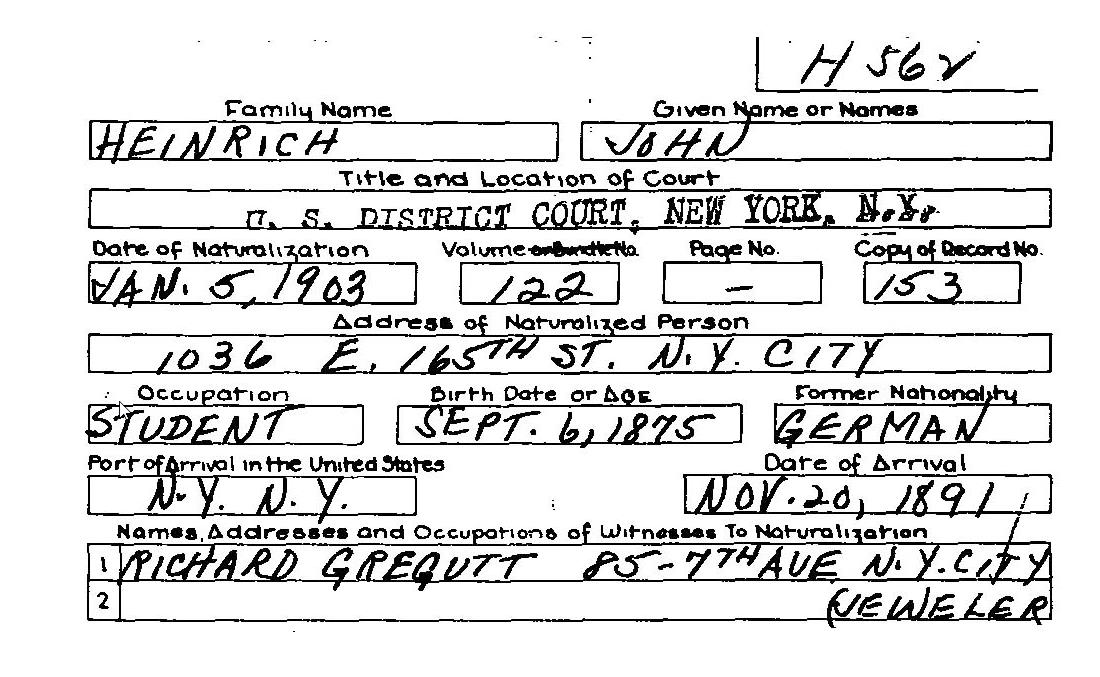 H 562
Family Name Given Name or Names
HEINRICH JOHN
Title and Location of Court
U. S. DISTRICT COURT, NEW YORK, N.Y.
Date of Naturalization Volume or Bundle No. Page No. Copy of Record No.
JAN. 5, 1903 122 — 153
Address of Naturalized Person
1036 E. 165TH ST. N.Y. CITY
Occupation Birth Date or AGE Former Nationality
STUDENT SEPT. 6, 1875 GERMAN
Port of Arrival in the United States Date of Arrival
N.Y. N.Y. NOV. 20, 1891
Names, Addresses and Occupations of Witnesses To Naturalization
1 RICHARD GREQUTT 85-7TH AVE N.Y. CITY
2 (JEWELER